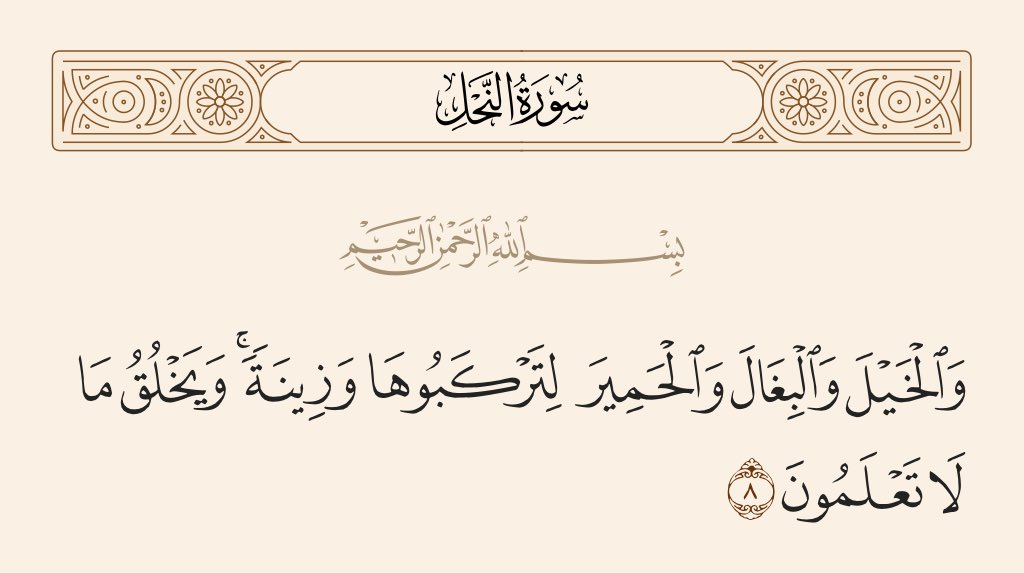 سُورَةُ النَّحْلِ
بِسْمِ ٱللَّهِ ٱلرَّحْمَٰنِ ٱلرَّحِيمِ
وَٱلْخَيْلَ وَٱلْبِغَالَ وَٱلْحَمِيرَ لِتَرْكَبُوهَا وَزِينَةً ۚ وَيَخْلُقُ مَا
لَا تَعْلَمُونَ ٨